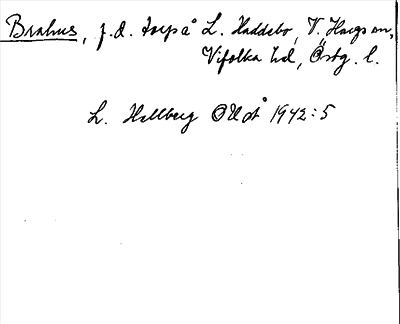 Brahus, f.d. torp å L. Haddebo, V. Hargs sn,
Vifolka hd, Östg. l.
L. Hellberg OUÅ 1942:5